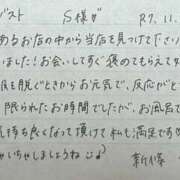 スト S様♡ R7.11.
あるお店の中から当店を見つけてださい
ました!お会いしてすぐ褒めてもらえて
服を脱ぐときからお元気で、反応がと
限られたお時間でしたが、お風呂で
気持ち良くなって頂けて私も満足です
ちゃいちゃしましょうね♪
新條